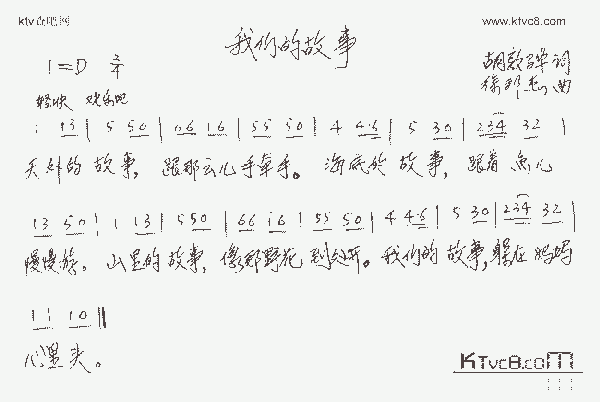 ktv歌吧网 www.ktvc8.com
我们的故事
1=D 2/4 胡敦骅 词
徐邦杰 曲
轻快 欢乐地
1 13 | 5 50 | 66 16 | 55 50 | 4 46 | 5 30 | 234 32 |
天外的故事，跟那云儿手牵手。海底的故事，跟着鱼儿
13 50 | 1 13 | 5 50 | 66 16 | 55 50 | 4 46 | 5 30 | 234 32 |
慢慢游。山里的故事，像那野花到处开。我们的故事，躲在妈妈
11 10 ||
心里头。
KTvc8.com